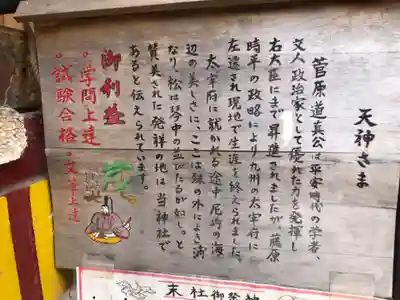 天神さま
菅原道真公は平安時代の学者、
文人、政治家として優れた力を発揮し
右大臣にまで昇進されましたが、藤原
時平の政略により九州の太宰府に
左遷され現地で生涯を終えられました。
太宰府に就かれる途中尼崎の海
辺の美しさに、ここは殊の外によき浦
なり、松は琴中の並びたるが如し。と
賛美された発祥の地は当神社で
あると伝えられています。
御利益
○学問上達
○試験合格 ○文章上達
末社御祭神